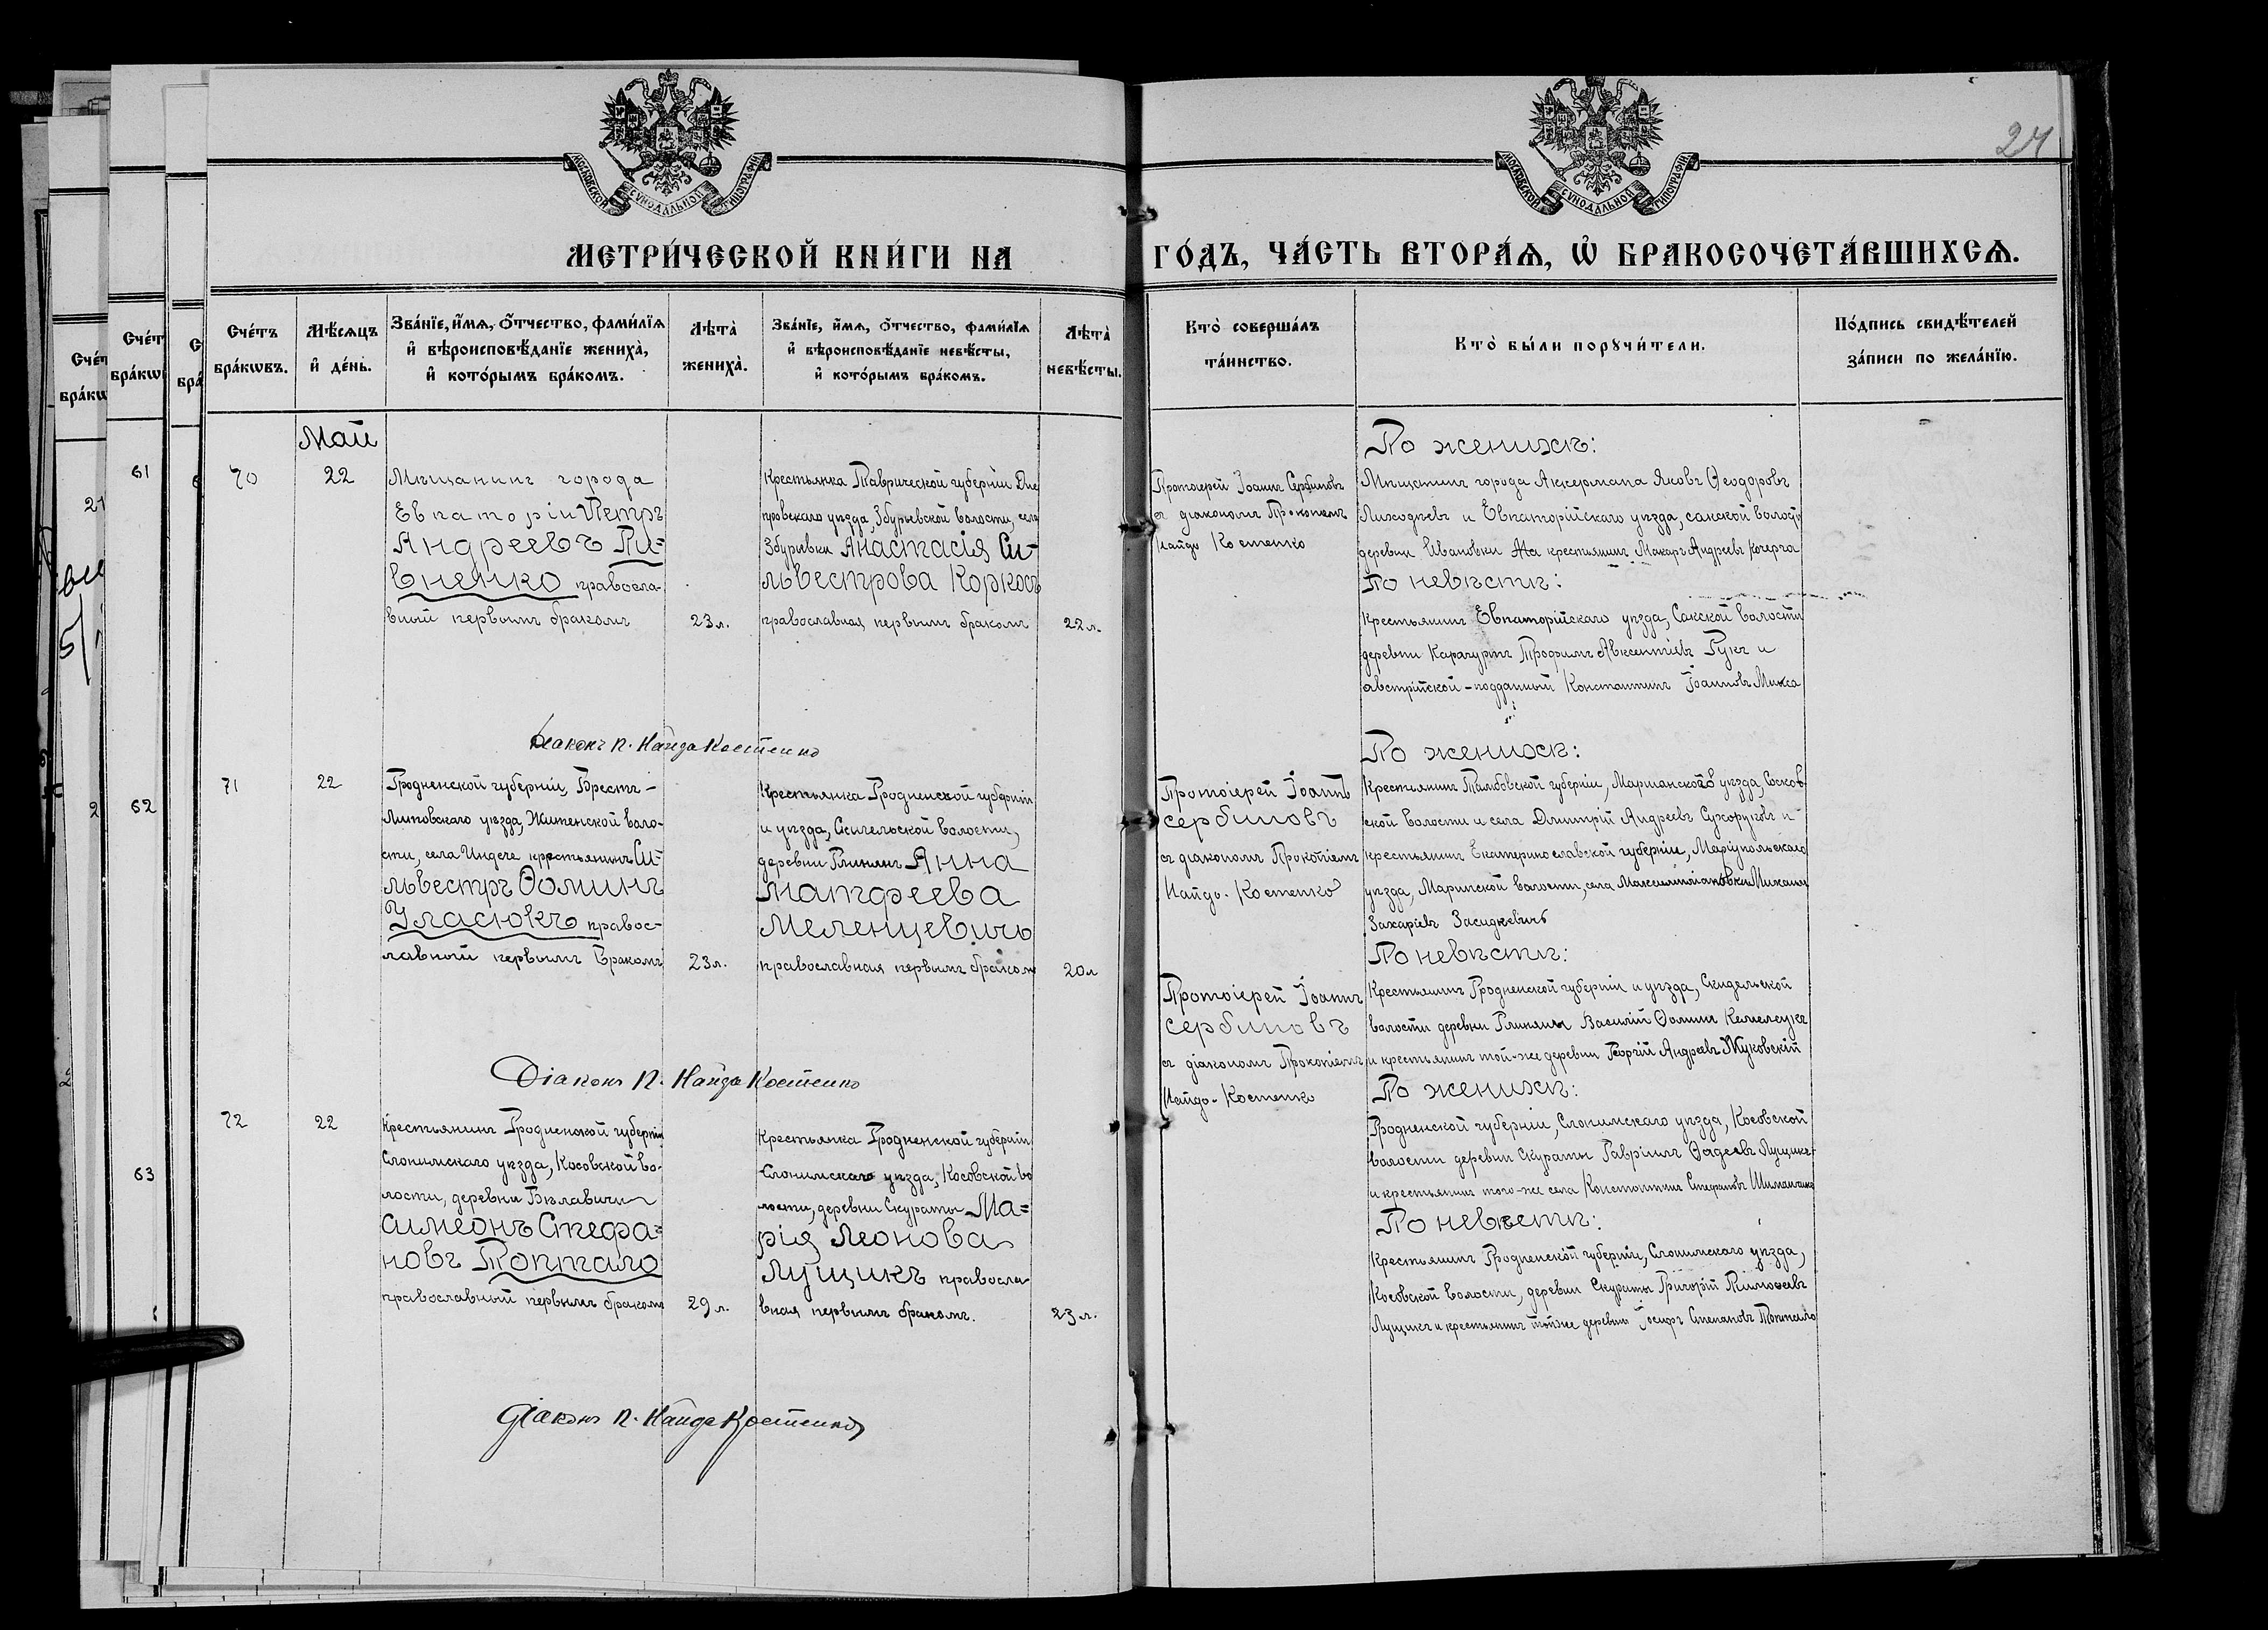 24
МОСКОВСКОЙ СѴНОДАЛЬНОЙ ТИПОГРАФІИ
МОСКОВСКОЙ СѴНОДАЛЬНОЙ ТИПОГРАФІИ
МЕТРИ́ЧЕСКОЙ КНИ́ГИ НА
ГО́ДЪ, ЧА́СТЬ ВТОРА́Ѧ, Ѡ҆ БРАКОСОЧЕТА́ВШИХСѦ.
Сче́тъ
бра́кѡвъ.
Мѣ́сѧцъ
и҆ де́нь.
Зва́нїе, и҆́мѧ, ѻ҆́тчество, фами́лїѧ
и҆ вѣроисповѣ́данїе жениха̀,
и҆ кото́рымъ бра́комъ.
Лѣ́та̀
жениха̀.
Зва́нїе, и҆́мѧ, ѻ҆́тчество, фами́лїѧ
и҆ вѣроисповѣ́данїе невѣ́сты,
и҆ кото́рымъ бра́комъ.
Лѣ́та̀
невѣ́сты.
Кто̀ соверша́лъ
та́инство.
Кто̀ бы́ли порꙋчи́тели.
По́дпись свидѣ́телей
за́писи по жела́нїю.
Май
70
22
Мѣщанинъ города
Евпаторіи Петръ
Андреевъ Пи-
вненко правосла-
вный первымъ бракомъ
23 л.
Крестьянка Таврической губерніи Дне
провскаго уѣзда, Збурьевской волости, села
Збурьевки Анастасія Си-
львестрова Коркось
православная первымъ бракомъ
22 л.
Протоіерей Іоаннъ Сербиновъ
съ діакономъ Прокопіемъ
Найдо Костенко
По женихѣ:
Мѣщанинъ города Аккермана Яковъ Ѳеодоровъ
Лиходѣевъ и Евпаторійскаго уѣзда, сакской волости
деревни Ивановки крестьянинъ Макаръ Андреевъ Кочерга
По невѣстѣ:
Крестьянинъ Евпаторійскаго уѣзда, Сакской волости
деревни Карагуртъ Трофимъ Авксентіевъ Рукъ и
австрійской-подданный Константинъ Іоанновъ Микса
Діаконъ П. Найда Костенко
71
22
Гродненской губерніи, Брестъ-
Литовскаго уѣзда, Житенской воло-
сти, села Индече крестьянинъ Си-
львестръ Ѳоминъ
Уласюкъ правос-
лавный первымъ бракомъ
23 л.
Крестьянка Гродненской губерніи
и уѣзда, Скидельской волости,
деревни Глиняны Анна
Матфеева
Меленцевичъ
православная первымъ бракомъ
20 л
Протоіерей Іоаннъ
Сербиновъ
съ діакономъ Прокопіемъ
Найдо-Костенко
По женихѣ:
Крестьянинъ Тамбовской губерніи, Маршанского уѣзда, Сосков-
ской волости и села Дмитрій Андреевъ Сухоруковъ и
крестьянинъ Екатеринославской губерніи, Маріупольскаго
уѣзда, Маринской волости, села Максимиліановки Михаилъ
Захаріевъ Засидкевичъ
По невѣстѣ:
Крестьянинъ Гродненской губерніи и уѣзда, Скидельской
волости деревни Глиняны Василій Ѳоминъ Кемелсукъ
и крестьянинъ той-же деревни Георгій Андреевъ Жуковскій
Діаконъ П. Найда Костенко
72
22
Крестьянинъ Гродненской губерніи
Слонимскаго уѣзда, Косовской во-
лости, деревни Бѣлавичи
Симеонъ Стефа-
новъ Топтало
православный первымъ бракомъ
29 л.
Крестьянка Гродненской губерніи
Слонимскаго уѣзда, Косовской во
лости, деревни Скураты Ма-
рія Леонова
Лущикъ правосла
вная первымъ бракомъ.
23 л.
Протоіерей Іоаннъ
Сербиновъ
съ діакономъ Прокопіемъ
Найдо-Костенко
По женихѣ:
Гродненской губерніи, Слонимскаго уѣзда, Косовской
волости деревни Скураты Гавріилъ Ѳадеевъ Лущикъ
и крестьянинъ того-же села Константинъ Стефановъ
По невѣстѣ:
Крестьянинъ Гродненской губерніи, Слонимскаго уѣзда,
Косовской волости, деревни Скураты Григорій Тимоѳеевъ
Лущикъ и крестьянинъ той же деревни Іосифъ Степановъ Топтало
Діаконъ П. Найда Костенко
61
62
63